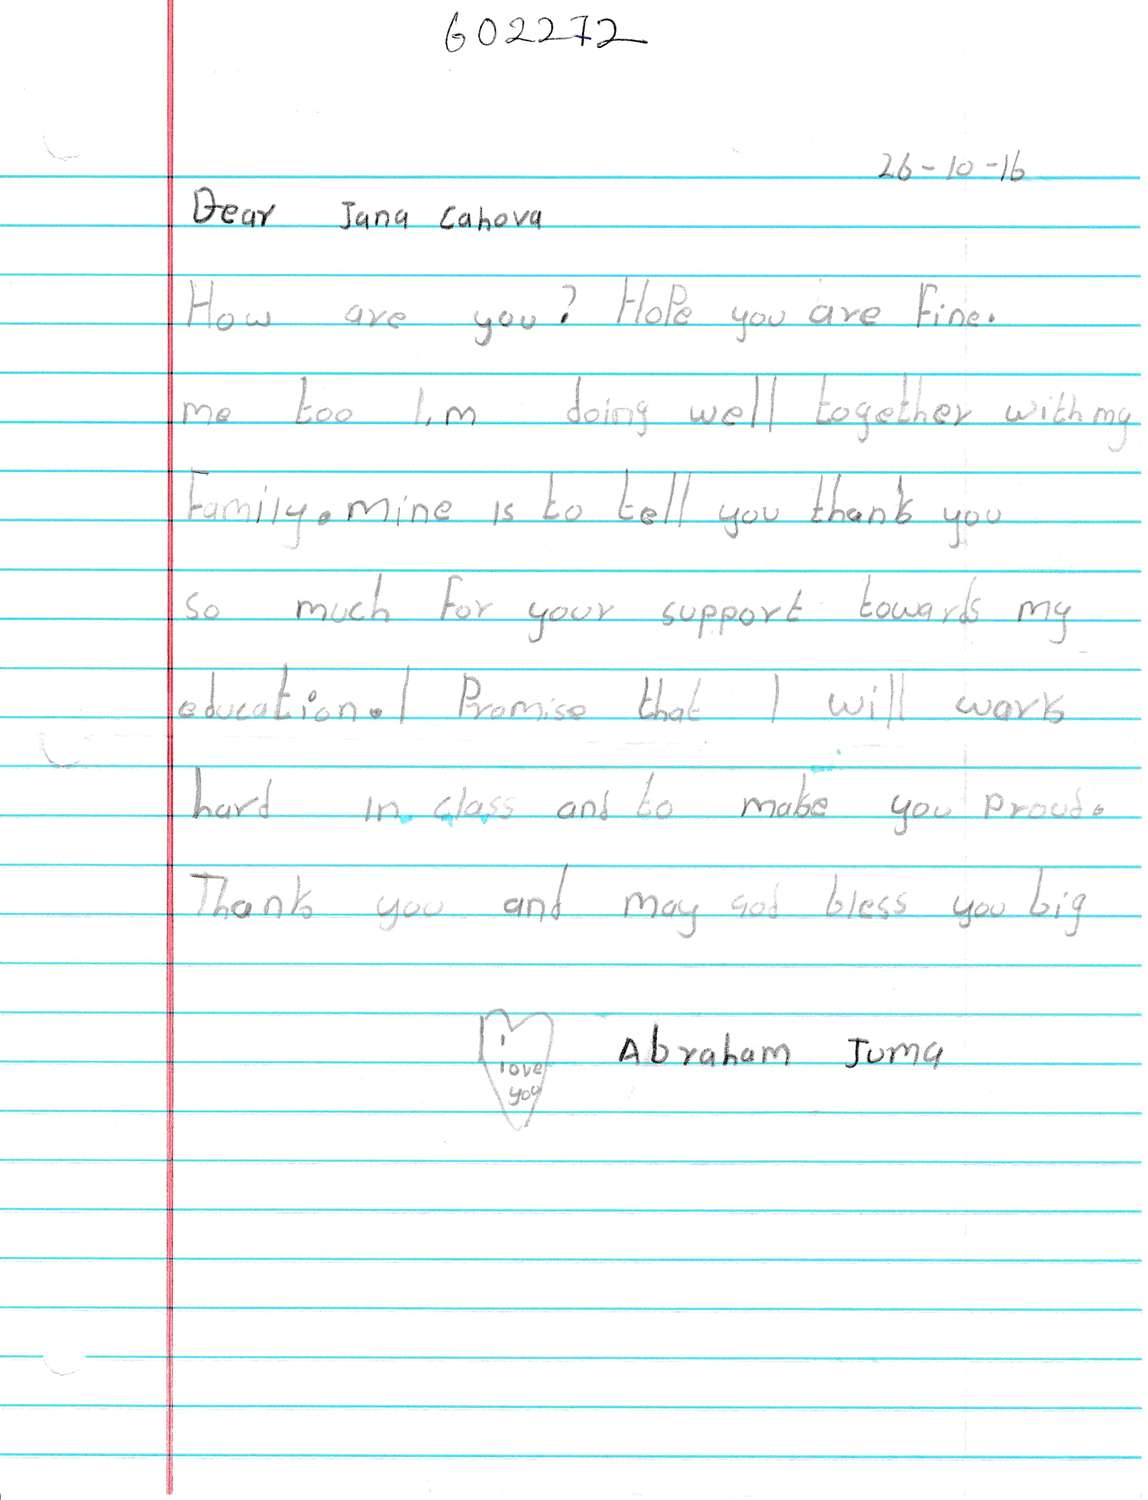 602272
26-10-16
Dear Jana Cahova
How are you? Hope you are Fine.
me too I,m doing well together with my
Family. mine is to tell you thank you
so much For your support towards my
education. I Promise that I will work
hard in class and to make you proud.
Thank you and may God bless you big
i
love
you
Abraham Juma